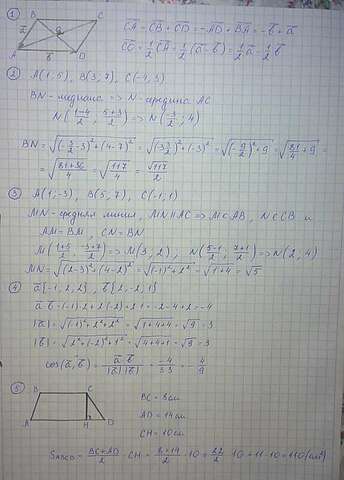 ① B C
a O
A b D
CA = CB + CD = -AD + BA = -b + a
CO = 1/2 CA = 1/2 (a - b) = 1/2 a - 1/2 b
② A(1,5), B(3,7), C(-4,3)
BN - медиана => N - середина AC
N((1-4)/2; (5+3)/2) => N(-3/2; 4)
BN = √((-3/2 - 3)² + (4-7)²) = √((-9/2)² + 9) = √(81/4 + 9) =
= √((81+36)/4) = √(117/4) = √117/2
③ A(1,-3), B(5,7), C(-1,1)
MN - средняя линия, MN∥AC => M∈AB, N∈CB и
AM=BM, CN=BN
M((1+5)/2; (-3+7)/2) => M(3,2), N((5-1)/2; (7+1)/2) => N(2,4)
MN = √((2-3)² + (4-2)²) = √((-1)² + 2²) = √(1+4) = √5
④ a{-1,2,2}, b{2,-2,1}
a b = (-1)·2 + 2·(-2) + 2·1 = -2-4+2 = -4
|a| = √((-1)² + 2² + 2²) = √(1+4+4) = √9 = 3
|b| = √(2² + (-2)² + 1²) = √(4+4+1) = √9 = 3
cos(a, b) = a b / |a| |b| = -4/3·3 = -4/9
⑤ B C
A H D
BC = 8см
AD = 14см
CH = 10см
SABCD = (BC+AD)/2 · CH = (8+14)/2 · 10 = 22/2 · 10 = 11·10 = 110 (см²)